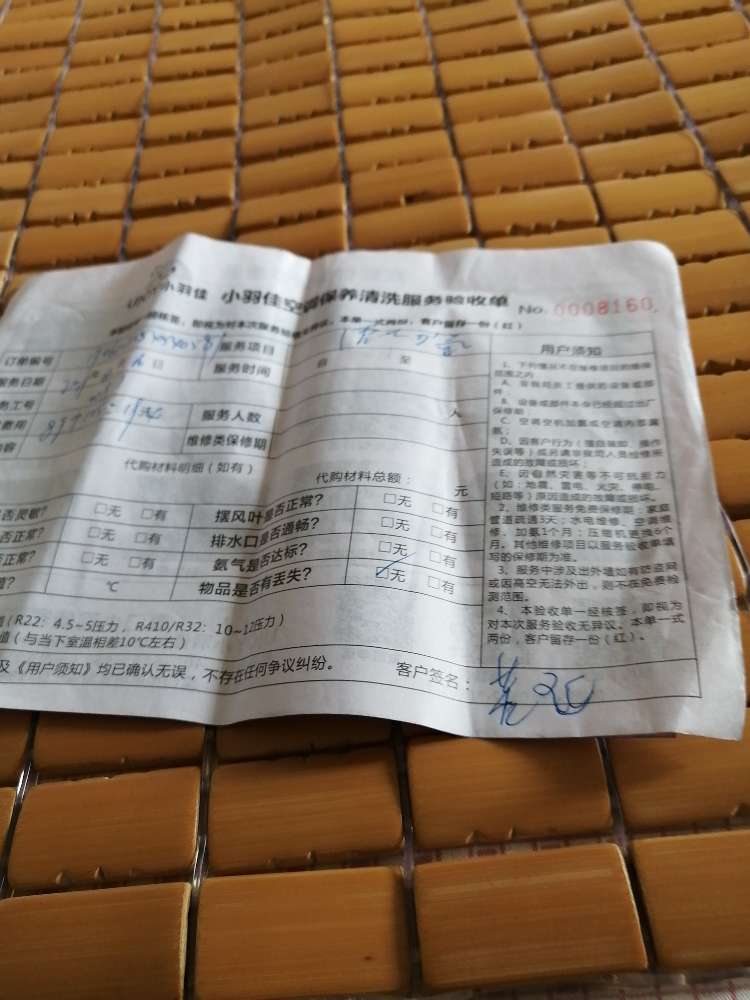 小羽佳 小羽佳空调保养清洗服务验收单 No. 0008160
即视为对本次服务验收无异议。本单一式两份，客户留存一份（红）
订单编号 服务项目
服务日期 日 服务时间 自 至
务工号
费用 服务人数 人
内容 维修类保修期
代购材料明细（如有）
代购材料总额： 元
否灵敏？ □无 □有 摆风叶是否正常？ □无 □有
否正常？ □无 □有 排水口是否通畅？ □无 □有
否正常？ □无 □有 氨气是否达标？ □无 □有
值？ ℃ 物品是否有丢失？ ☑无 □有
（R22：4.5~5压力，R410/R32：10~12压力）
值（与当下室温相差10℃左右）
及《用户须知》均已确认无误，不存在任何争议纠纷。 客户签名：
用户须知
1、下列情况不在维修项目的维保
范围之内
A、非我司员工提供的设备或部
件
B、设备或部件本身已经超过出厂
保修期；
C、空调空机加氟或空调内部漏
氨；
D、因客户行为（擅自装卸、操作
失误等）或另请非我司人员检修所
造成的故障或损坏；
E、因自然灾害等不可抗拒力
（如：地震、雷电、火灾、停电、
短路等）原因造成的故障或损坏。
2、维修类服务免费保修期：家庭
管道疏通3天；水电维修、空调维
修、加氨1个月；压缩机更换6个
月。其他维修项目以服务验收单填
写的保修期为准。
3、服务中涉及出外墙如有防盗网
或因高空无法外出，则不在免费检
测范围。
4、本验收单一经核签，即视为
对本次服务验收无异议。本单一式
两份，客户留存一份（红）。